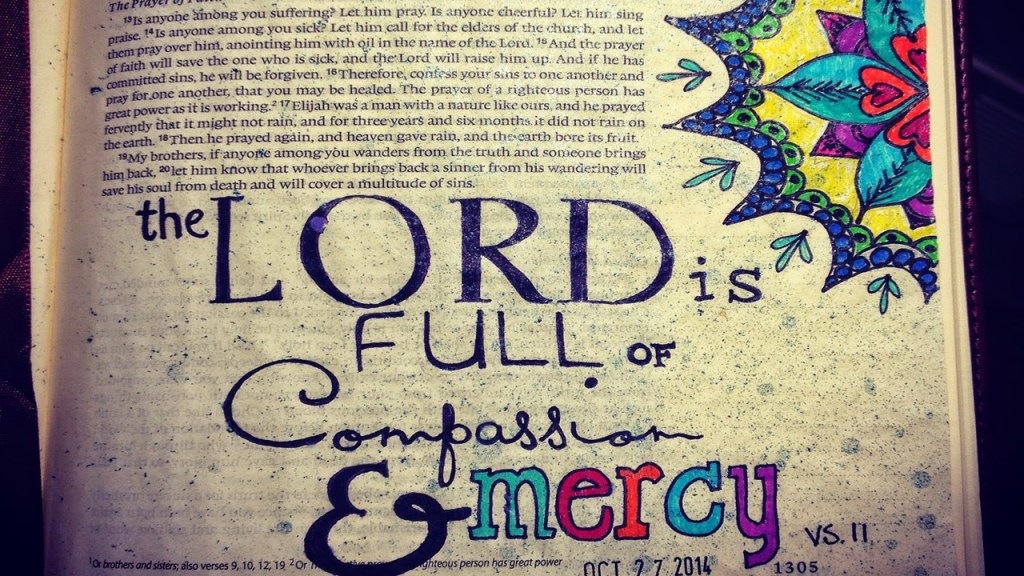 The Prayer of Faith
13 Is anyone among you suffering? Let him pray. Is anyone cheerful? Let him sing
praise. 14 Is anyone among you sick? Let him call for the elders of the church, and let
them pray over him, anointing him with oil in the name of the Lord. 15 And the prayer
of faith will save the one who is sick, and the Lord will raise him up. And if he has
committed sins, he will be forgiven. 16 Therefore, confess your sins to one another and
pray for one another, that you may be healed. The prayer of a righteous person has
great power as it is working.2 17 Elijah was a man with a nature like ours, and he prayed
fervently that it might not rain, and for three years and six months it did not rain on
the earth. 18 Then he prayed again, and heaven gave rain, and the earth bore its fruit.
19 My brothers, if anyone among you wanders from the truth and someone brings
him back, 20 let him know that whoever brings back a sinner from his wandering will
save his soul from death and will cover a multitude of sins.
the LORD is
FULL OF
Compassion
& mercy
VS. 11
1 Or brothers and sisters; also verses 9, 10, 12, 19 2 Or righteous person has great power
OCT 27 2014
1305